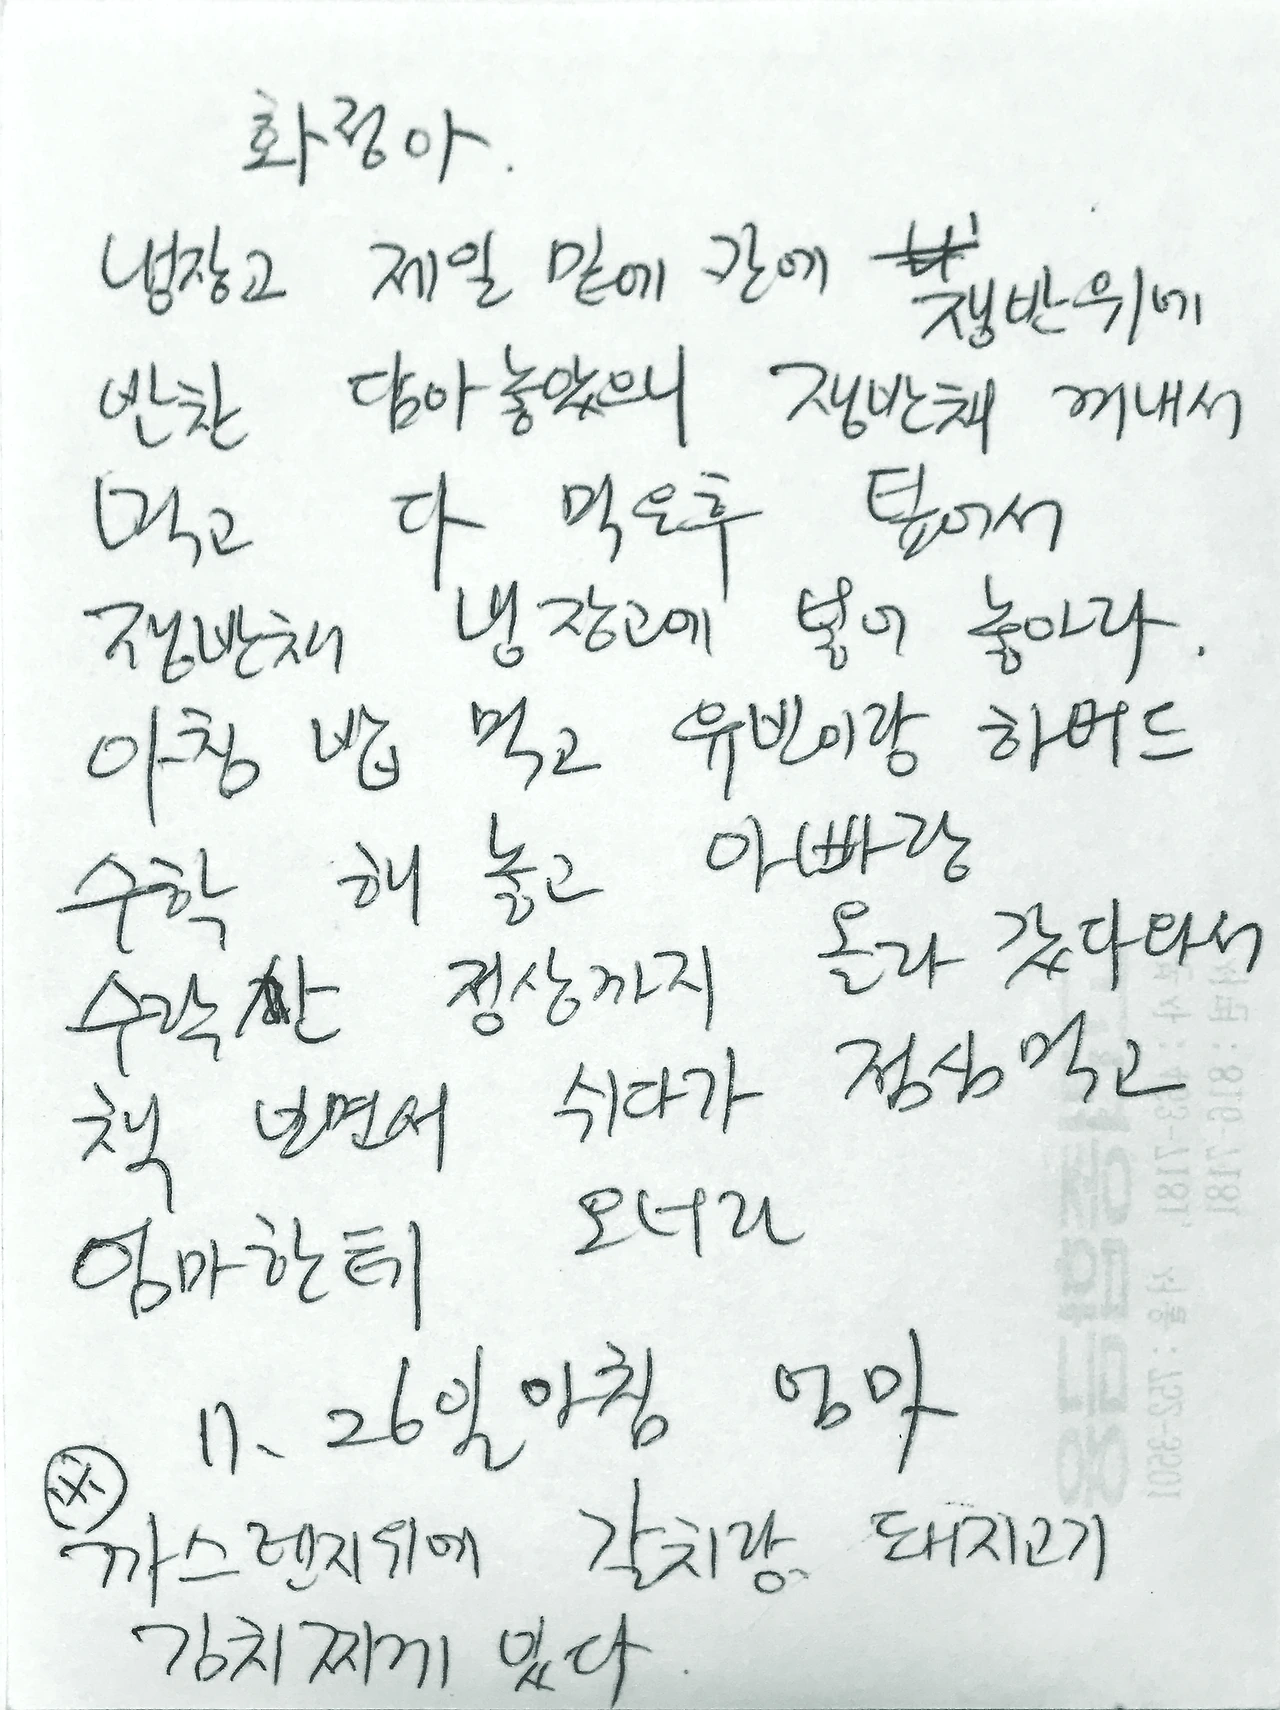 화정아.
냉장고 제일 밑에 칸에 쟁반위에
반찬 담아놓았으니 쟁반채 꺼내서
먹고 다 먹은후 덮어서
쟁반채 냉장고에 넣어 놓아라.
아침 밥 먹고 유빈이랑 하버드
수학 해 놓고 아빠랑
수락산 정상까지 올라 갔다와서
책 보면서 쉬다가 점심먹고
엄마한테 오너라
11. 26일 아침 엄마
※
까스렌지위에 갈치랑 돼지고기
김치찌게 있다.